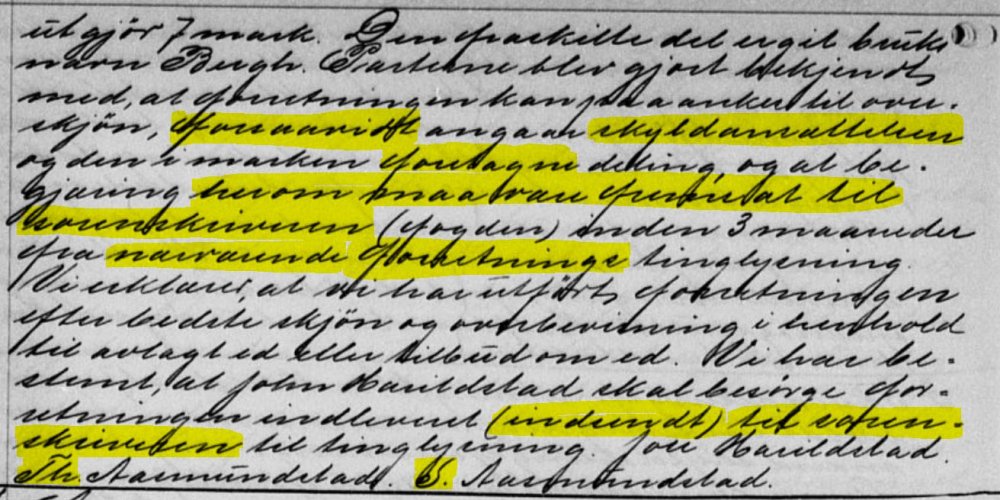 utgjör 7 mark. Den fraskilte del er git bruks
navn Bergh. Parterne blev gjort bekjendt
med, at forretningen kan paaankes til over-
skjön, forsaavidt angaar skyldansættelsen
og den i marken foretagne deling, og at be-
gjæring herom maa være fremsat til
sorenskriveren (fogden) inden 3 maaneder
fra nærværende forretnings tinglysning.
Vi erklærer, at vi har utfört forretningen
efter bedste skjön og overbevisning i henhold
til avlagt ed eller tilbud om ed. Vi har be-
stemt, at John Harildstad skal besörge for-
retningen indleveret (indsendt) til soren-
skriveren til tinglysning. Joh Harildstad.
Th. Aasmundstad. S. Aasmundstad.